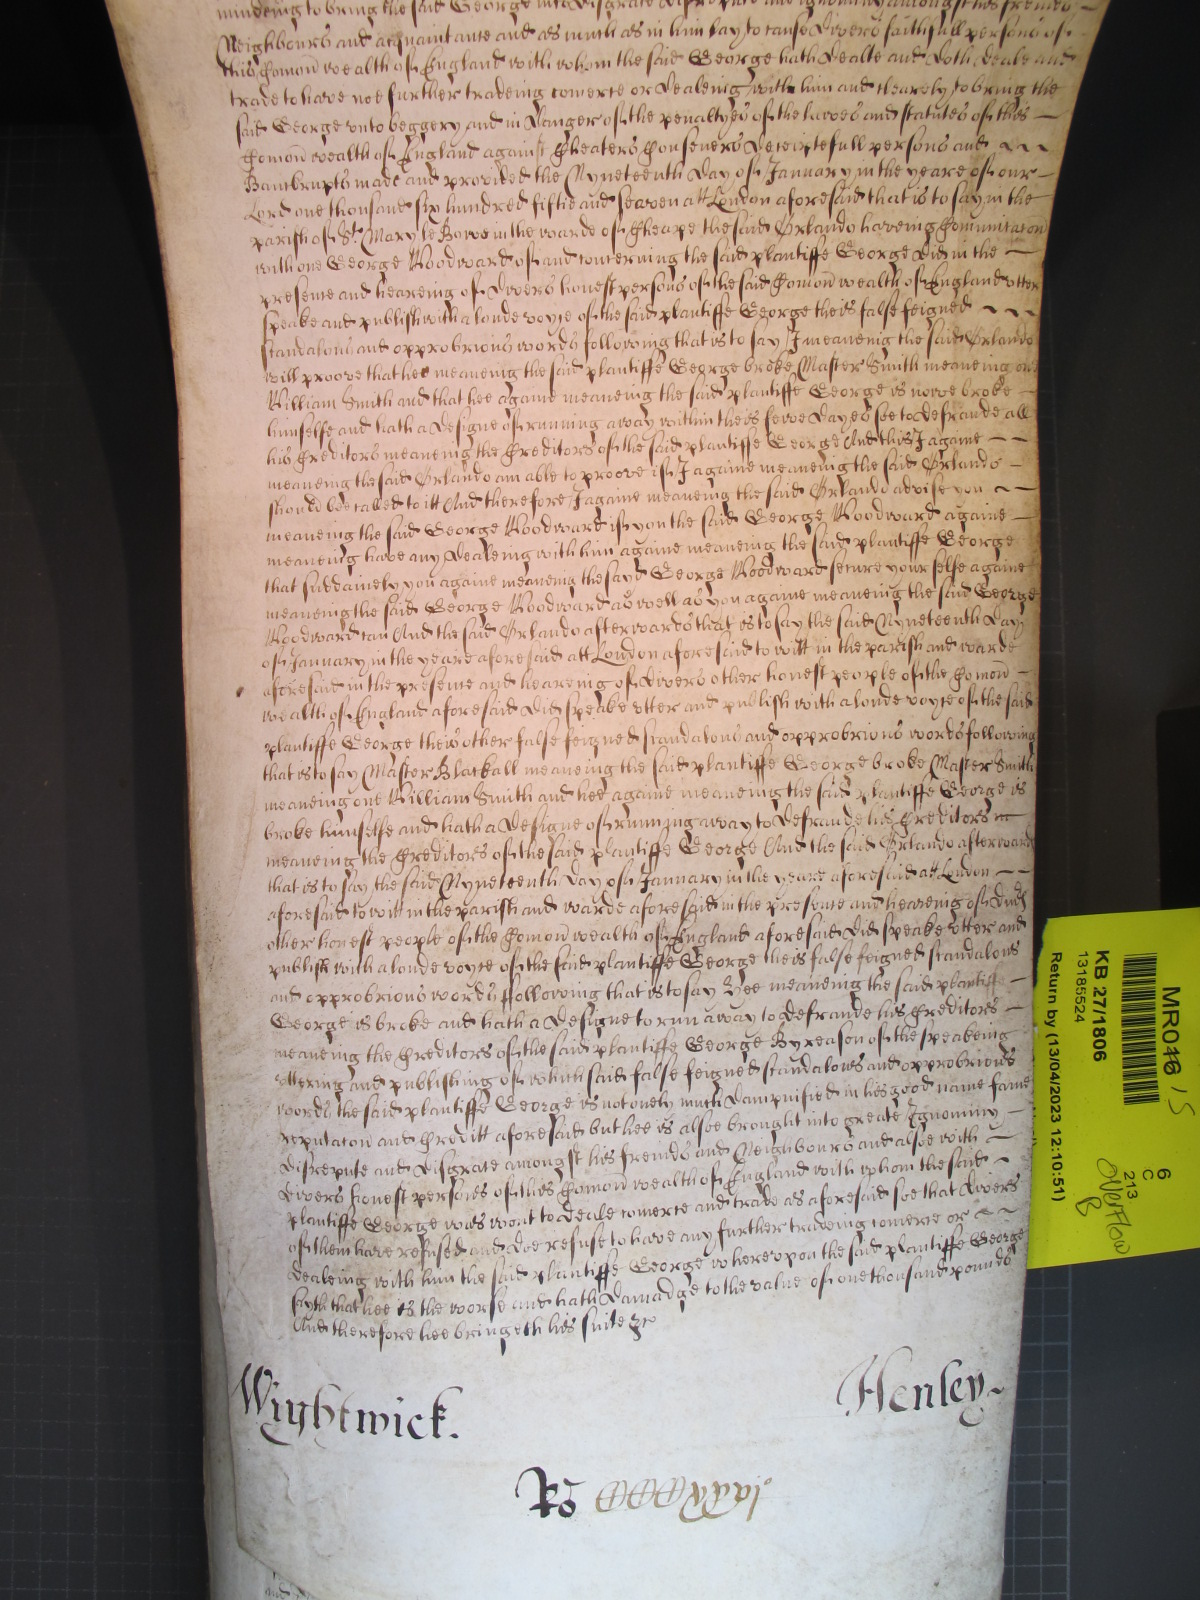 intending to bring the said George into disgrace disrepute and ignominy amongst his freinds
Neighbours and acquaintance and as much as in him lay to cause divers faithfull persons of
this Comon wealth of England with whom the said George hath dealte and doth deale and
trade to have noe further tradeing comerce or dealeing with him and thereby to bring the
said George unto beggery and in danger of the penaltyes of the lawes and statutes of this
Comon wealth of England against Cheaters Couseners deceiptefull persons and
Banckrupts made and provided the Nyneteenth day of January in the yeare of our
Lord one thousand six hundred fiftie and seaven att London aforesaid that is to say in the
parish of St. Mary le Bowe in the warde of Cheape the said Orlando haveing Comunicacon
with one George Woodward of and concerning the said plantiffe George did in the
presence and heareing of divers honest persons of the said Comon wealth of England utter
speake and publish with a loude voyce of the said plantiffe George theis false feigned
scandalous and opprobrious words following that is to say I meaneing the said Orlando
will proove that hee meaneing the said plantiffe George broke Master Smith meaneing one
William Smith and that hee againe meaneing the said plantiffe George is nowe broke
himselfe and hath a designe of running away within theis fewe dayes soe to defraude all
his Creditors meaneing the Creditors of the said plantiffe George And this I againe
meaneing the said Orlando am able to proove if I againe meaneing the said Orlando
should bee called to itt And therefore I againe meaneing the said Orlando advise you
meaneing the said George Woodward if you the said George Woodward againe
meaneing have any dealeing with him againe meaneing the said plantiffe George
that suddainely you againe meaneing the sayd George Woodward secure your selfe againe
meaneing the said George Woodward as well as you againe meaneing the said George
Woodward can And the said Orlando afterwards that is to say the said Nyneteenth day
of January in the yeare aforesaid att London aforesaid to witt in the parish and warde
aforesaid in the presence and heareing of divers other honest people of the Comon
wealth of England aforesaid did speake utter and publish with a loude voyce of the said
plantiffe George theis other false feigned scandalous and opprobrious words following
that is to say Master Blackall meaneing the said plantiffe George broke Master Smith
meaneing one William Smith and hee againe meaneing the said plantiffe George is
broke himselfe and hath a designe of running away to defraude his Creditors
meaneing the Creditors of the said plantiffe George And the said Orlando afterwards
that is to say the said Nyneteenth day of January in the yeare aforesaid att London
aforesaid to witt in the parish and warde aforesaid in the presence and heareing of divers
other honest people of the Comon wealth of England aforesaid did speake utter and
publish with a loude voyce of the said plantiffe George theis false feigned scandalous
and opprobrious words following that is to say Hee meaneing the said plantiffe
George is broke and hath a designe to run away to defraude his Creditors
meaneing the Creditors of the said plantiffe George By reason of the speakeing
uttering and publishing of which said false feigned scandalous and opprobrious
words the said plantiffe George is not onely much dampnified in his good name fame
reputacon and Creditt aforesaid but hee is alsoe brought into greate Ignominy
disrepute and disgrace amongst his freinds and Neighbours and alsoe with
divers honest persons of this Comon wealth of England with whom the said
plantiffe George was wont to deale comerce and trade as aforesaid soe that divers
of them have refused and doe refuse to have any further tradeing comerce or
dealeing with him the said plantiffe George whereupon the said plantiffe George
sayth that hee is the worse and hath damadge to the value of one thousand pounds
And therefore hee bringeth his suite &c
Wightwick. Henley
Ro CCCCxxxvjo
MR046 / 5
KB 27/1806
13185524
Return by (13/04/2023 12:10:51)
6
C
213
Overflow
B